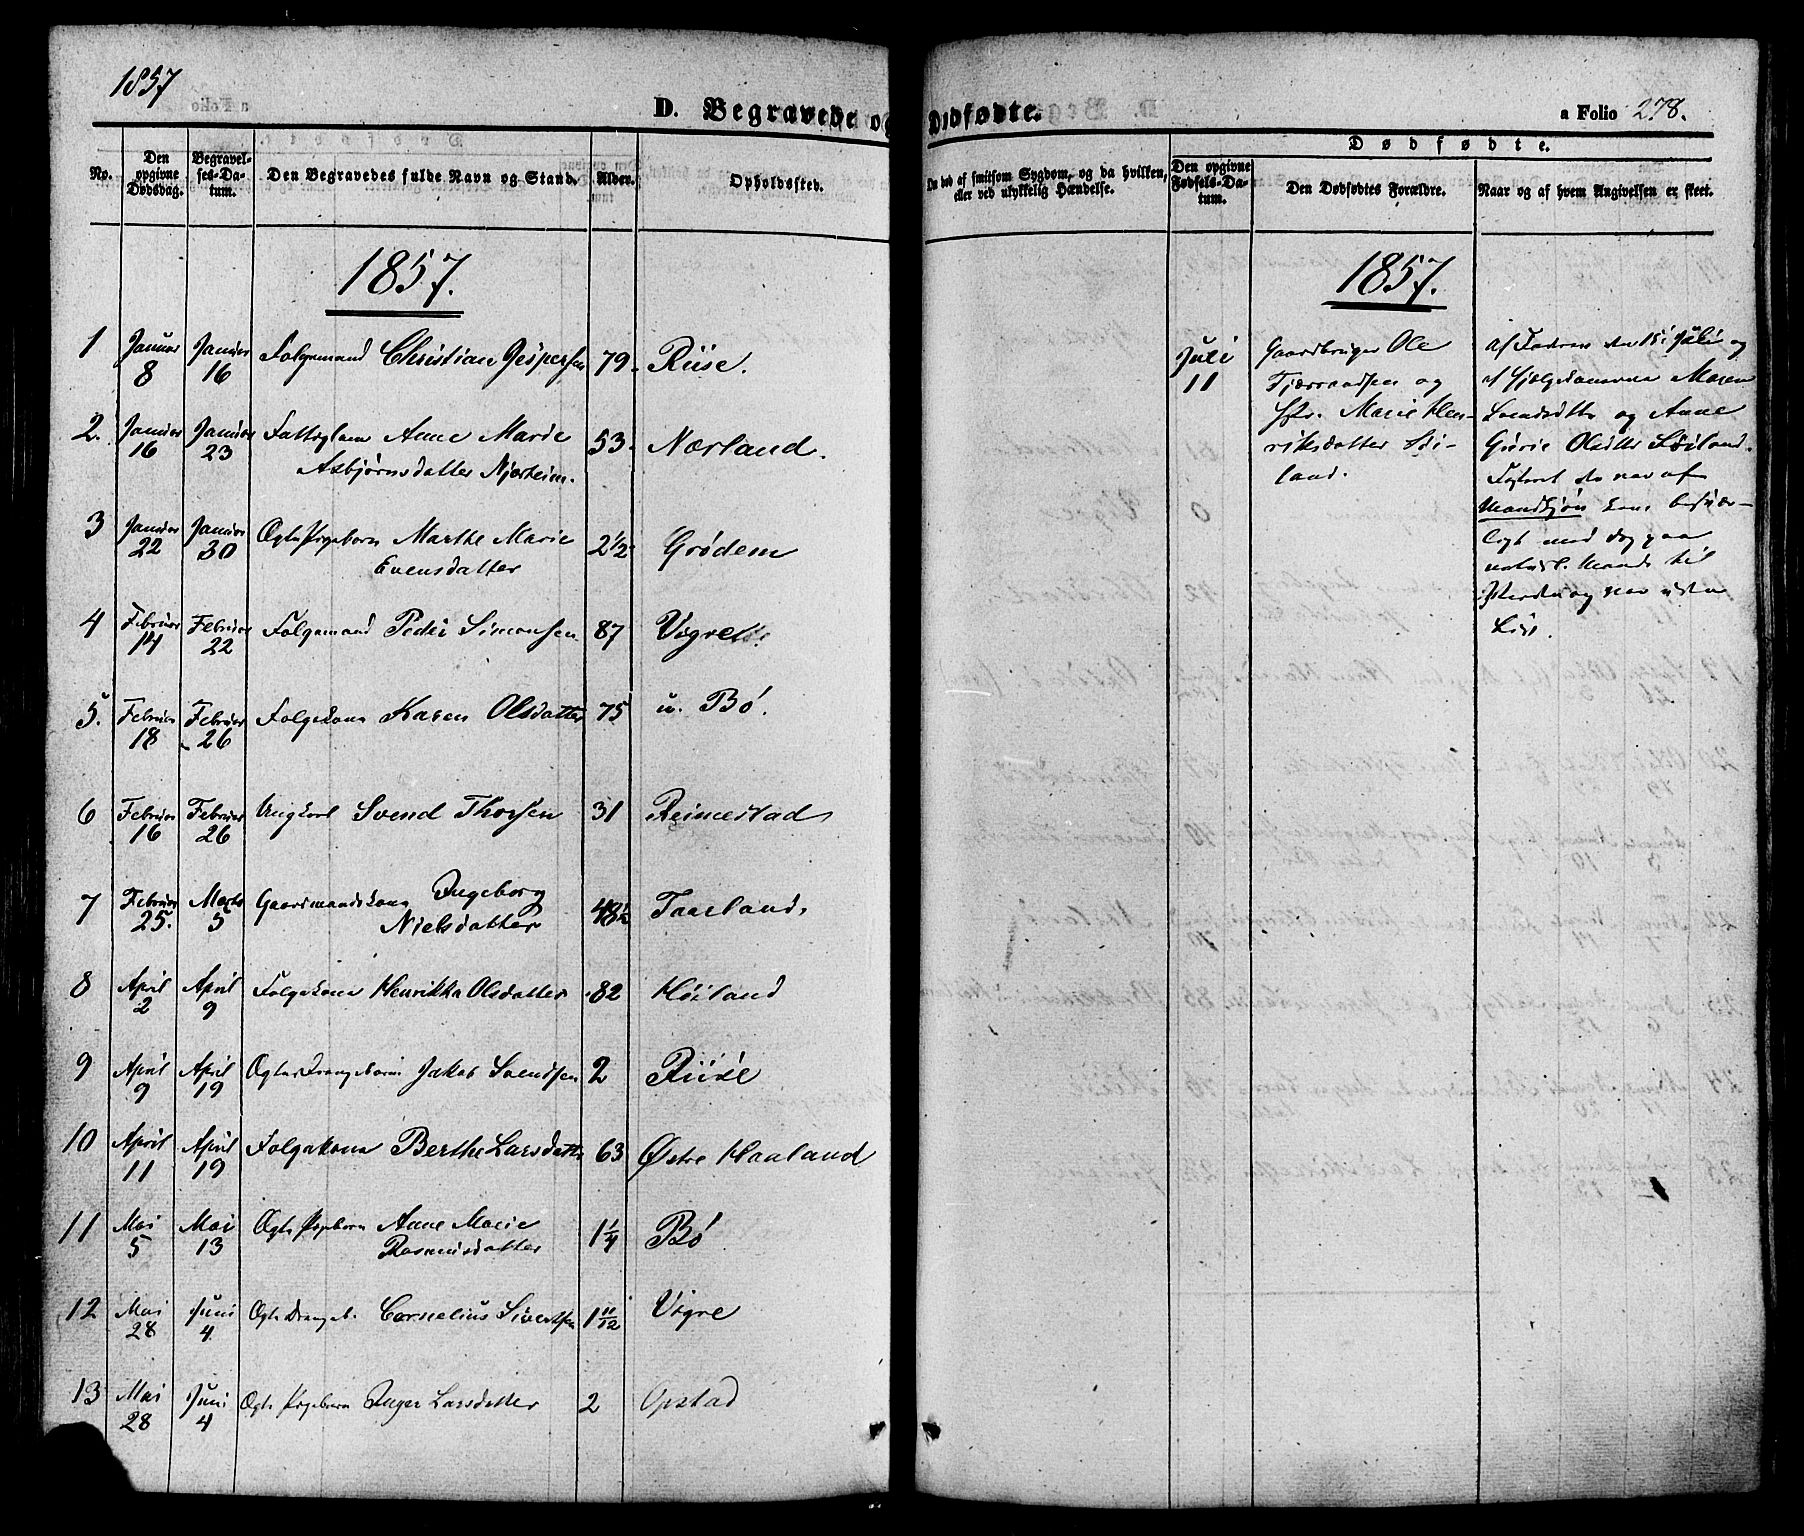 1857
D. Begravede og Dødfødte.
a Folio 278.
No.
Den opgivne Dødsdag.
Begravelses-Datum.
Den Begravedes fulde Navn og Stand.
Alder.
Opholdssted.
Om død af smitsom Sygdom, og da hvilken, eller ved ulykkelig Hændelse.
Dødfødte.
Den opgivne Fødsels-Datum.
Den Dødfødtes Forældre.
Naar og af hvem Angivelsen er skeet.
1857.
1857.
1 Januar 8 Januar 16 Folgemand Christian Jespersen 79. Riise.
2. Januar 16 Januar 23 Fattiglem Anne Marie
Asbjørnsdatter Njærheim. 53. Nærland.
3 Januar 22 Januar 30 Ægte Pigebarn Marthe Marie
Evensdatter 2 1/2 Grødem
4 Februar 14 Februar 22 Folgemand Peder Simonsen 87 Vigre
5. Februar 18 Februar 26 Folgekone Karen Olsdatter 75 u. Bø.
6 Februar 16 Februar 26 Ungkarl Svend Thorsen 31 Reimestad
7 Februar 25. Marts 5 Gaardmandskone Ingeborg
Nielsdatter 48 1/2 Taarland
8 April 2 April 9 Folgekone Henrikka Olsdatter 82 Høiland
9 April 9 April 19 Ægte Drengebarn Jakob Svendsen 2 Riise
10 April 11 April 19 Folgekone Berthe Larsdatter 63 Østre Haaland
11 Mai 5 Mai 13 Ægte Pigebarn Anne Marie
Rasmusdatter 1 1/4 Bø
12 Mai 28 Juni 4 Ægte Drengeb. Cornelius Sivertsen 1 11/12 Vigre
13 Mai 28 Juni 4 Ægte Pigebarn Inger Larsdatter 2 Opstad
Juli
11
Gaardbruger Ole
Tjærrandsen og
Marie Hen-
riksdatter Høi-
land.
Af Faderen den 15 Juli og
af Hjælpekonerne Maren
og Anne
Gurie Olsdtr Høiland.
Fosteret var af
Mandkjøn
med
til
og var uden
Liv.